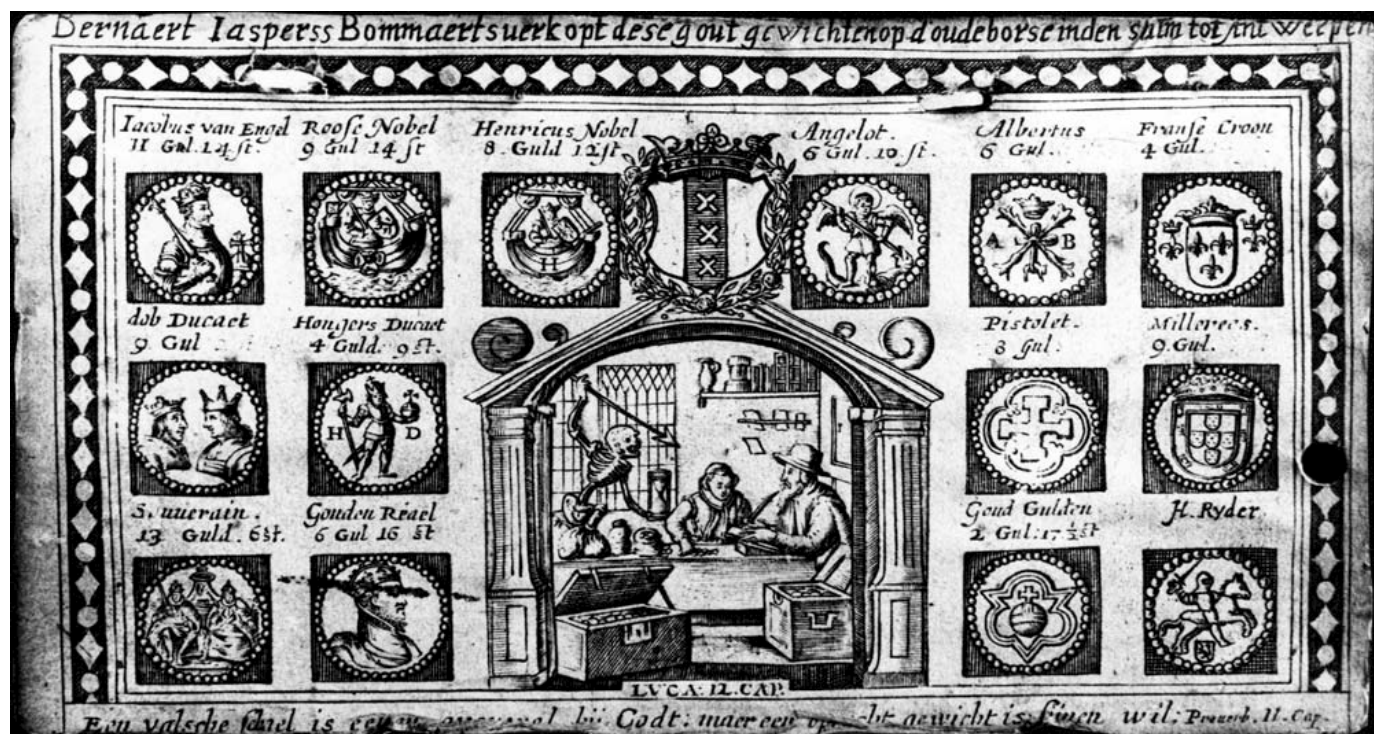 Bernaert Iasperss Bommaerts verkopt dese gout gewichten op d oude borse inden salm tot Antweepen
Iacobus van Engel
11 Gul. 14 st.
Roose Nobel
9 Gul 14 st
Henricus Nobel
8. Guld 12 st
Angelot.
6 Gul. 10 st.
Albertus
6 Gul.
Franse Croon
4 Gul.
H
A B
dob Ducaet
9 Gul
Hongers Ducaet
4 Guld. 9 st.
Pistolet.
3 gul.
Millerees.
9. Gul.
H D
S. uuerain.
13 Guld. 6 st.
Gouden Reael
6 Gul 16 st
Goud Gulden
2 Gul: 17 ½ st
H. Ryder
LVCA: 12. CAP.
Een valsche schael is een bij Godt: maer een gewicht is sinen wil: Prouerb. 11. Cap.